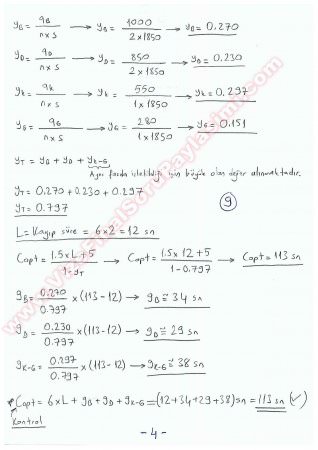 y_B = q_B / (n x s) → y_B = 1000 / (2 x 1850) → y_B = 0.270
y_D = q_D / (n x s) → y_D = 850 / (2 x 1850) → y_D = 0.230
y_K = q_K / (n x s) → y_K = 550 / (1 x 1850) → y_K = 0.297
y_G = q_G / (n x s) → y_G = 280 / (1 x 1850) → y_G = 0.151
y_T = y_B + y_D + y_K-G
Aynı fazda işletildiği için büyük olan değer alınmaktadır.
y_T = 0.270 + 0.230 + 0.297
y_T = 0.797
9
L = Kayıp süre = 6x2 = 12 sn
Copt = (1.5xL+5) / (1-y_T) → Copt = (1.5x12+5) / (1-0.797) → Copt = 113 sn
g_B = 0.270 / 0.797 x (113-12) → g_B ≅ 34 sn
g_D = 0.230 / 0.797 x (113-12) → g_D ≅ 29 sn
g_K-G = 0.297 / 0.797 x (113-12) → g_K-G ≅ 38 sn
* Copt = 6xL + g_B + g_D + g_K-G = (12+34+29+38) sn = 113 sn (✓)
Kontrol
- 4 -